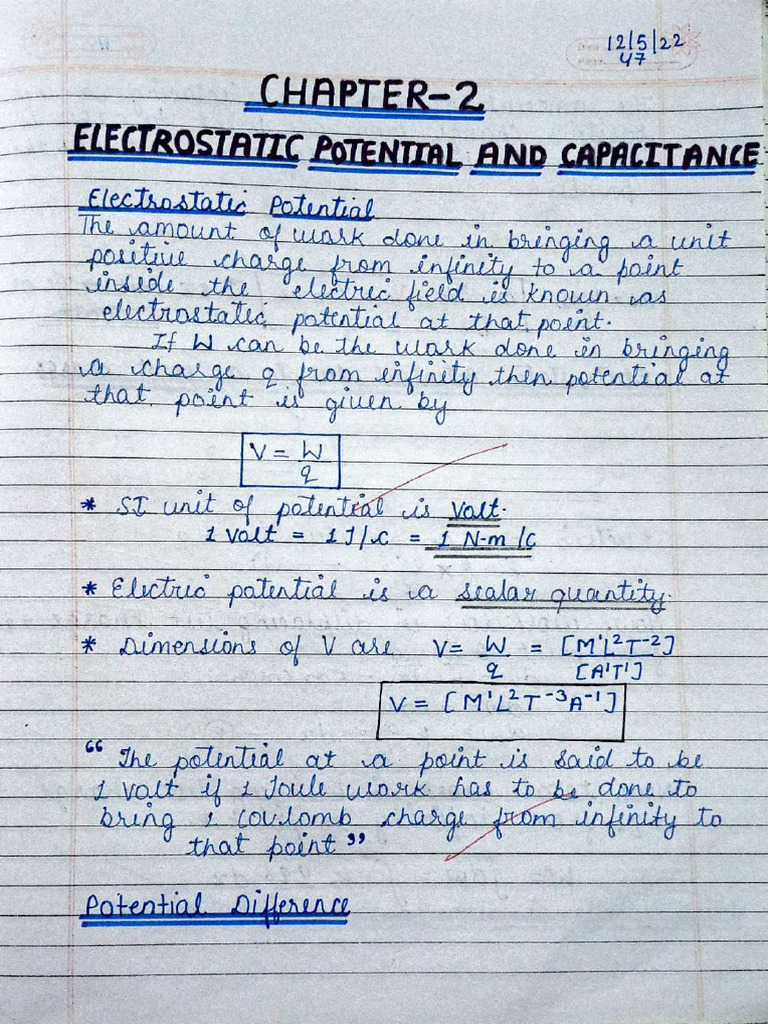 12/5/22
47
CHAPTER-2
ELECTROSTATIC POTENTIAL AND CAPACITANCE
Electrostatic Potential
The amount of work done in bringing a unit
positive charge from infinity to a point
inside the electric field is known as
electrostatic potential at that point.
If W can be the work done in bringing
a charge q from infinity then potential at
that point is given by
V = W/q
* SI unit of potential is Volt.
1 Volt = 1 J/c = 1 N-m/C
* Electric potential is a scalar quantity.
* Dimensions of V are V = W/q = [M¹L²T⁻²]/[A¹T¹]
V = [M¹L²T⁻³A⁻¹]
"The potential at a point is said to be
1 Volt if 1 Joule work has to be done to
bring 1 coulomb charge from infinity to
that point"
Potential Difference